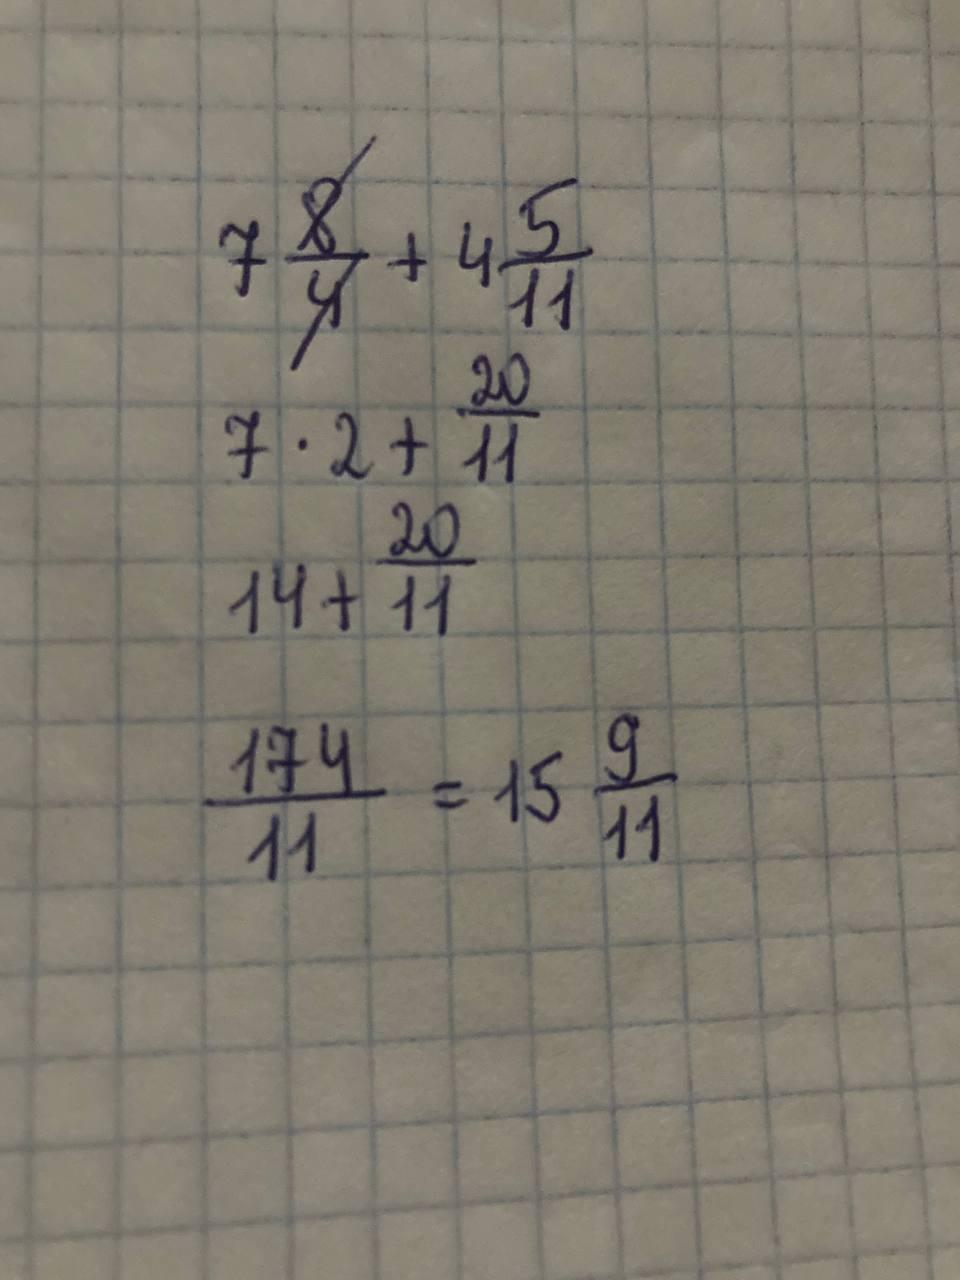 7 8/4 + 4 5/11
7 · 2 + 20/11
14 + 20/11
174/11 = 15 9/11